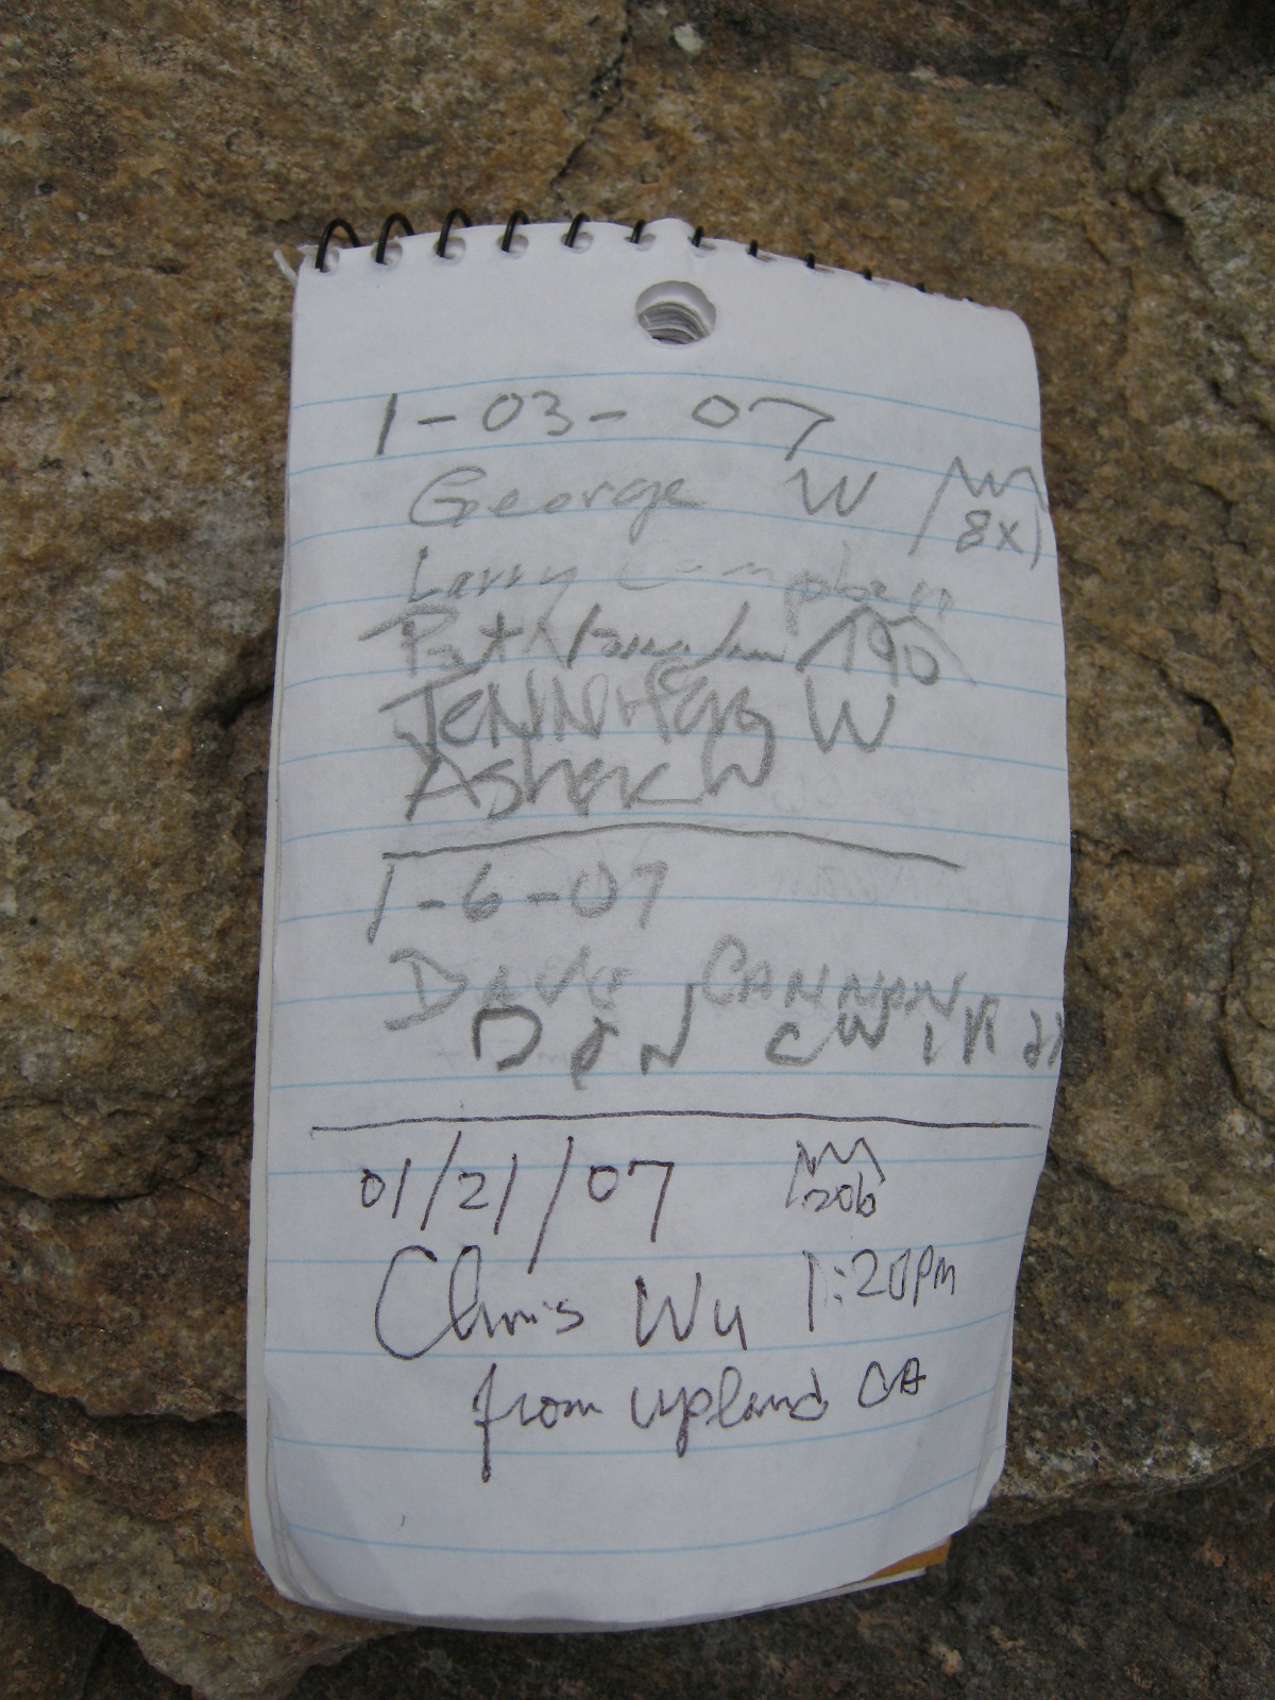 1-03-07
George W 8x)
Larry Campbell
Pat 190
JENNIFER W
ASHER W
1-6-07
DAVE CANNON
DON
01/21/07 206
Chris Wu 1:20pm
from upland CA